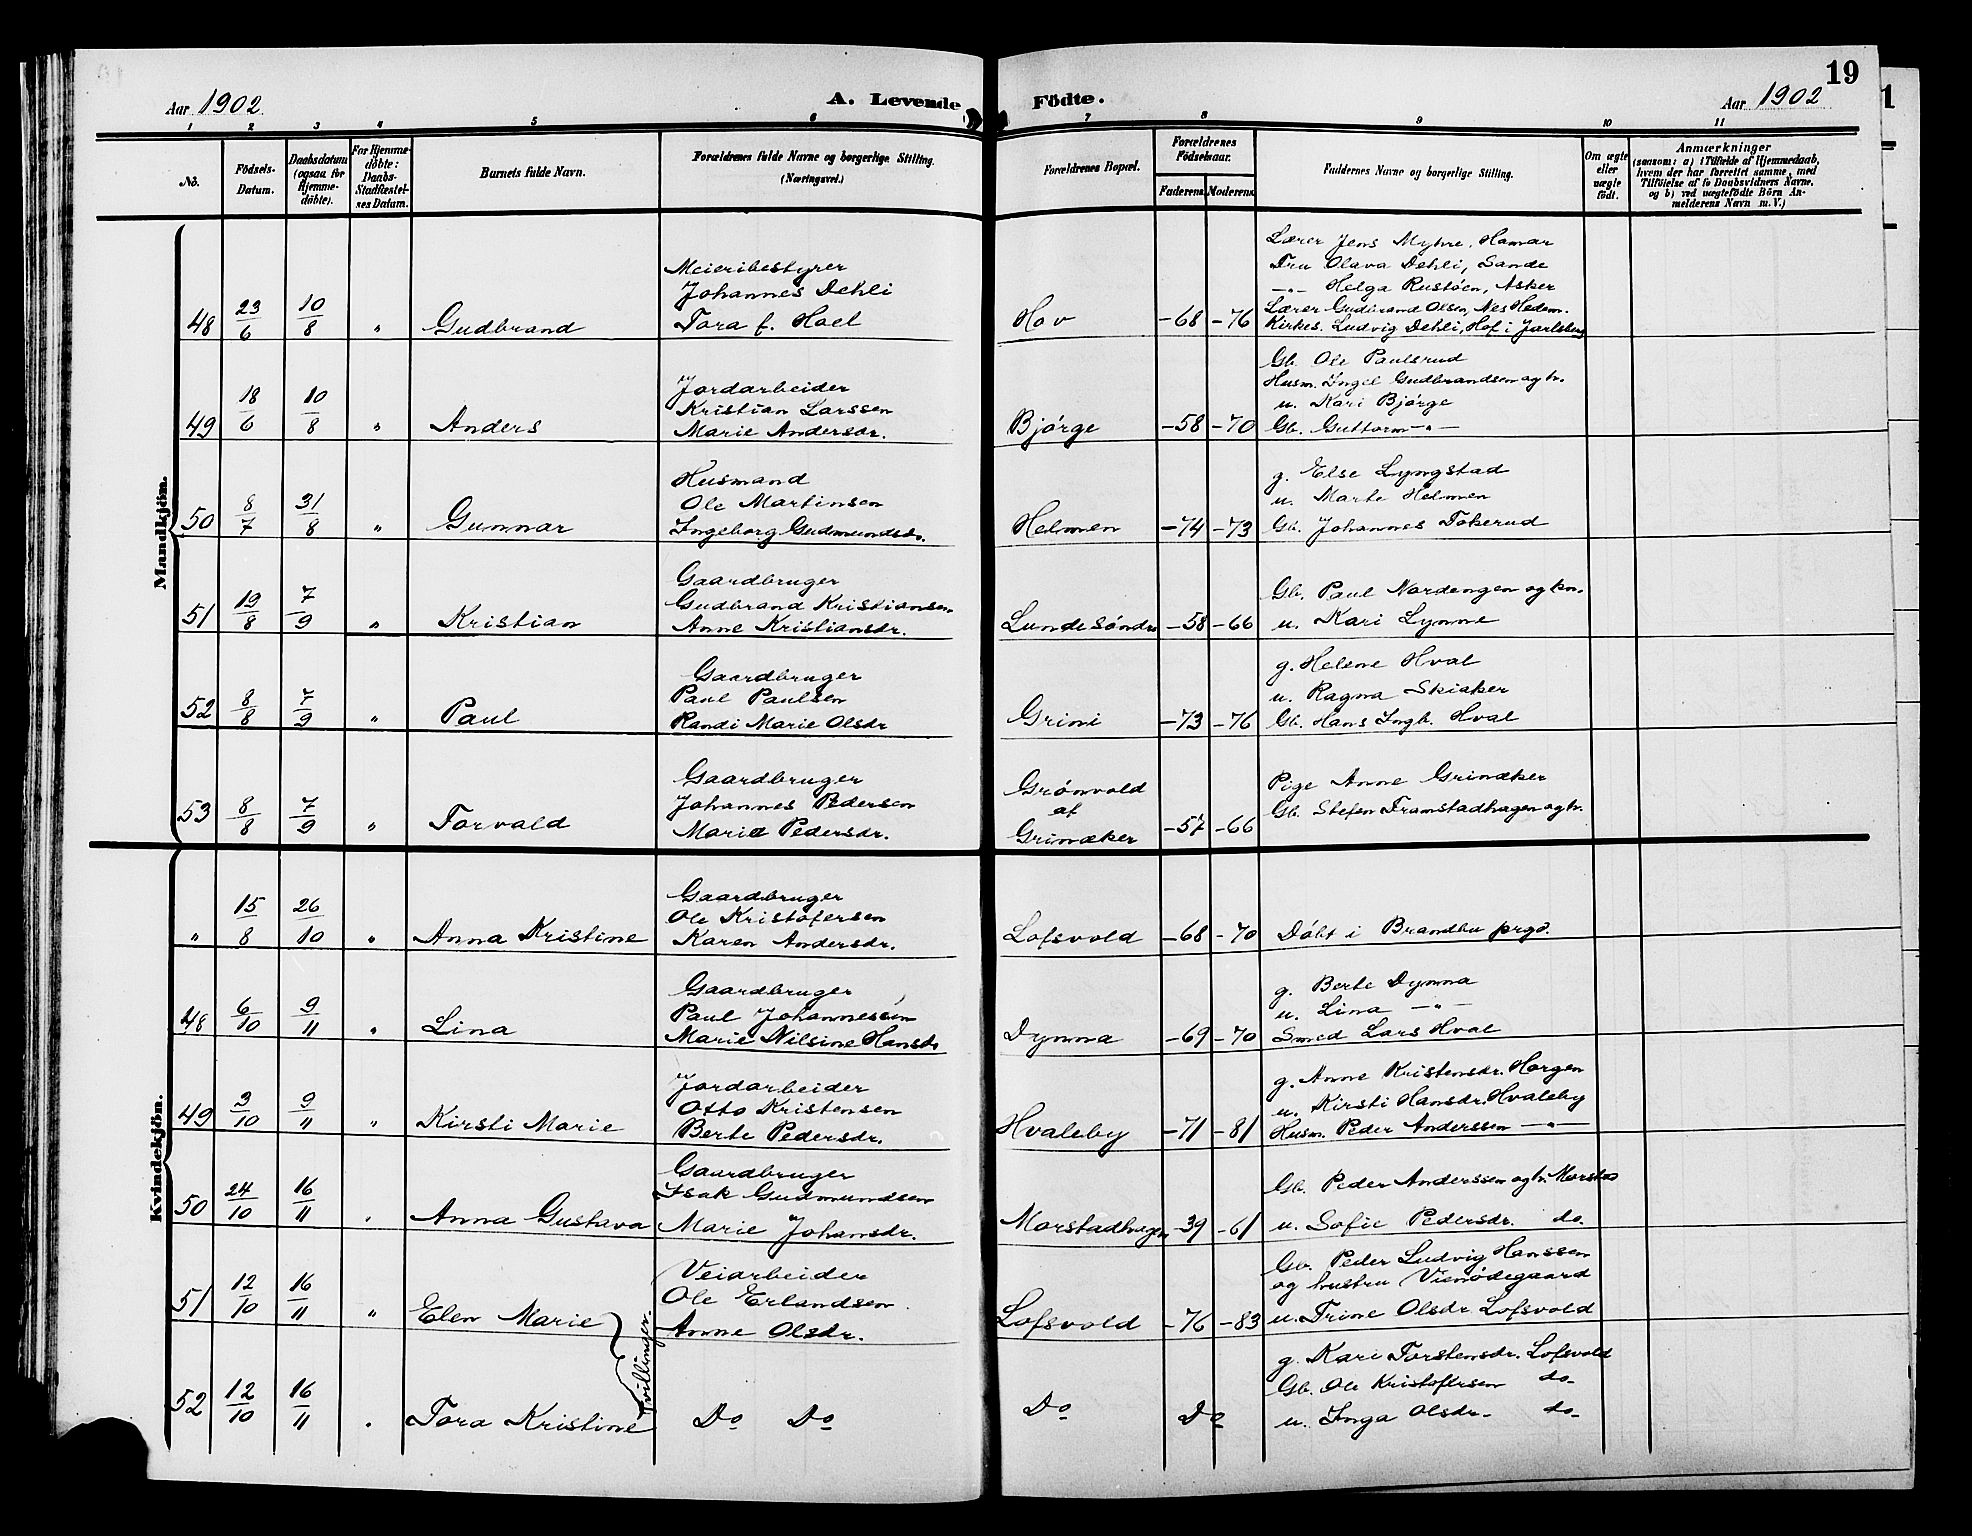 19
Aar 1902
A. Levende Födte.
Aar 1902
1 2 3 4 5 6 7 8 9 10 11
No.
Födsels-Datum.
Daabsdatum (ogsaa for Hjemme-döbte).
For Hjemme-döbte: Daabs-Stadfæstel-ses Datum.
Barnets fulde Navn.
Forældrenes fulde Navne og borgerlige Stilling.
(Næringsvei.)
Forældrenes Bopæl.
Forældrenes Födselsaar.
Faderens. Moderens.
Faddernes Navne og borgerlige Stilling.
Om ægte eller uægte födt.
Anmærkninger
(saasom: a) i Tilfælde af Hjemmedaab,
hvem der har forrettet samme, med
Tilföielse af to Daabsvidners Navne,
og b) ved uægtefödte Börn An-
melderens Navn m. V.)
Mandkjön.
48 23/6 10/8 " Gudbrand
Meieribestyrer
Johannes Dehli
Tora f. Hoel
Hov -68 -76
Lærer Jens Myhre, Hamar
Fru Olava Dehli, Sande
-"- Helga Rustöen, Asker
Lærer Gudbrand Olsen, Nes Hedem.
Kirkes. Ludvig Dehli, Hof i Jarlsberg
49 18/6 10/8 " Anders
Jordarbeider
Kristian Larssen
Marie Andersdr.
Bjórge -58 -70
Gb. Ole Paulsrud
Husm. Ingel Gudbrandsen og h.
u. Kari Bjórge
Gb. Guttorm -"-
50 8/7 31/8 " Gunnar
Husmand
Ole Martinsen
Ingeborg Gudmundsdr.
Helmen -74 -73
g. Else Lyngstad
u. Marte Helmen
Gb. Johannes Tokerud
51 19/8 7/9 " Kristian
Gaardbruger
Gudbrand Kristiansen
Anne Kristiansdr.
Lunde söndre -58 -66
Gb. Paul Nordengen og kon.
u. Kari Lynne
52 8/8 7/9 " Paul
Gaardbruger
Paul Paulsen
Randi Marie Olsdr
Grini -73 -76
g. Helene Hval
u. Ragna Skiaker
Gb. Hans Ingb. Hval
53 8/8 7/9 " Torvald
Gaardbruger
Johannes Pedersen
Marie Pedersdr.
Grönvold
af
Grinaker -57 -66
Pige Anne Grinaker
Gb. Stefen Framstadhagen og h.
Kvindekjön.
" 15/8 26/10 " Anna Kristine
Gaardbruger
Ole Kristofersen
Karen Andersdr.
Lofsvold -68 -70
Döbt i Brandbu prgd.
48 6/10 9/11 " Lina
Gaardbruger
Paul Johannessen
Marie Nilsine Hansdr
Dynna -69 -70
g. Berte Dynna
u. Lina -"-
Smed Lars Hval
49 3/10 9/11 " Kirsti Marie
Jordarbeider
Otto Kristensen
Berte Pedersdr.
Hvaleby -71 -81
g. Anne Kristensdr. Horgen
u. Kirsti Hansdr. Hvaleby
Husm. Peder Anderssen -"-
50 24/10 16/11 " Anna Gustava
Gaardbruger
Isak Gudmundsen
Marie Johansdr.
Morstadhagen -39 -61
Gb. Peder Anderssen og h. Morstad
u. Sofie Pedersdr. do.
51 12/10 16/11 " Elen Marie
Veiarbeider
Ole Erlandsen
Anne Olsdr.
Lofsvold -76 -83
Gb. Peder Ludvig Hanssen
og hustru Vienödegaard
u. Trine Olsdr. Lofsvold
Tvillinger.
52 12/10 16/11 " Tora Kristine
Do Do
Do Do
g. Kari Torstensdr. Lofsvold
Gb. Ole Kristofersen do-
u. Inga Olsdr- do-